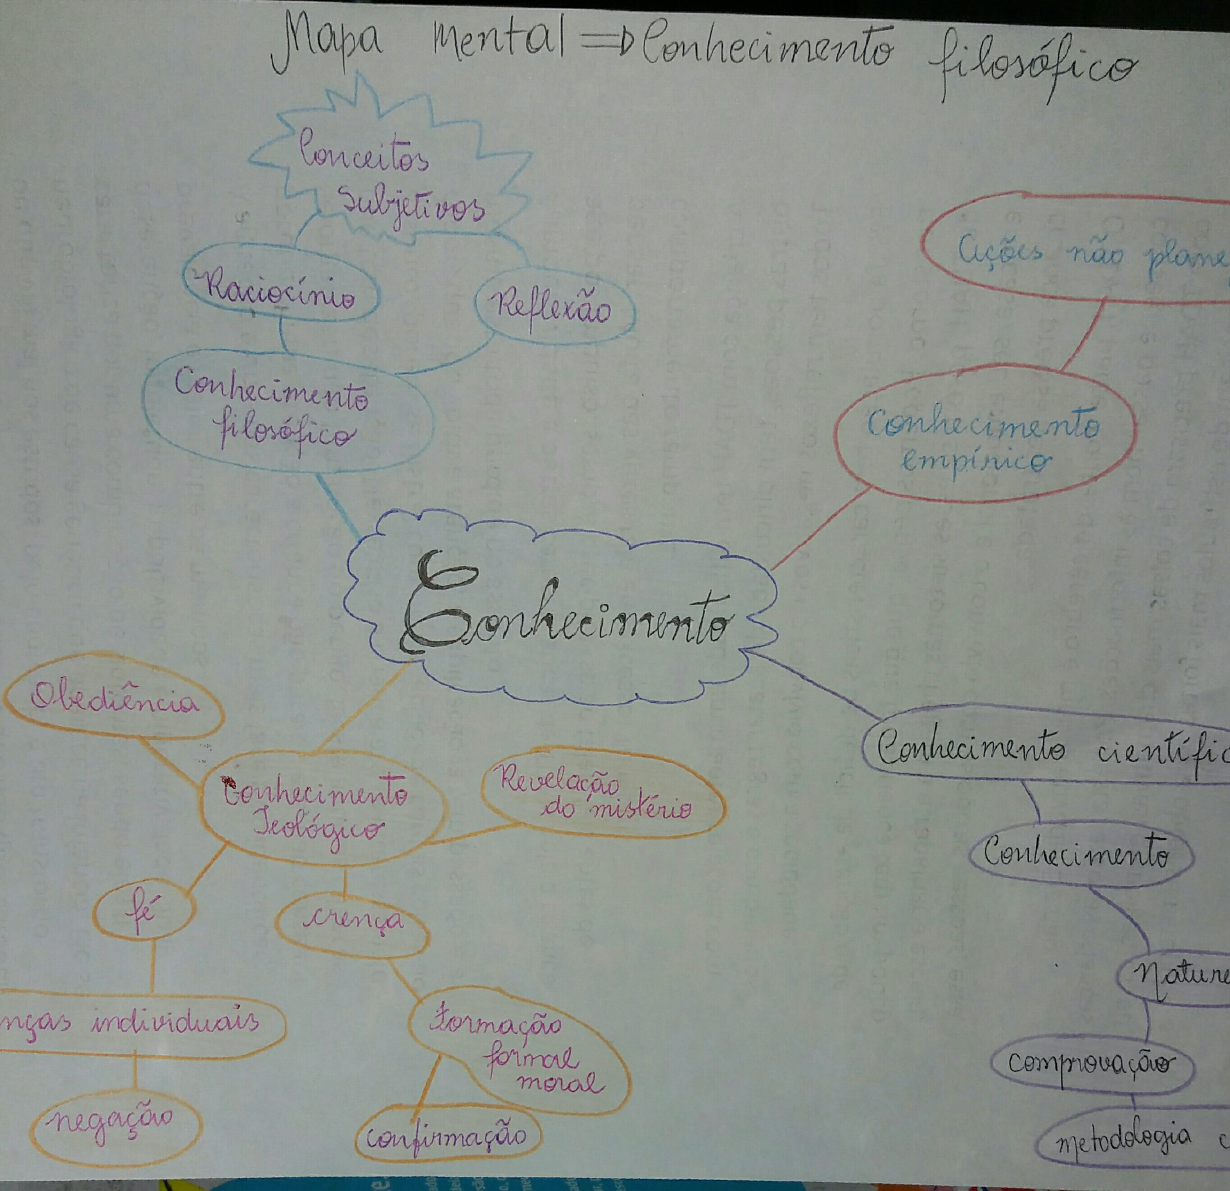 Mapa mental ⇒ Conhecimento filosófico
Conceitos
Subjetivos
Raciocínio
Reflexão
Conhecimento
filosófico
Ações não plane
Conhecimento
empírico
Conhecimento
Obediência
Conhecimento
Teológico
Revelação
do mistério
fé
crença
nças individuais
negação
Formação
formal
moral
confirmação
Conhecimento científic
Conhecimento
Nature
comprovação
metodologia c